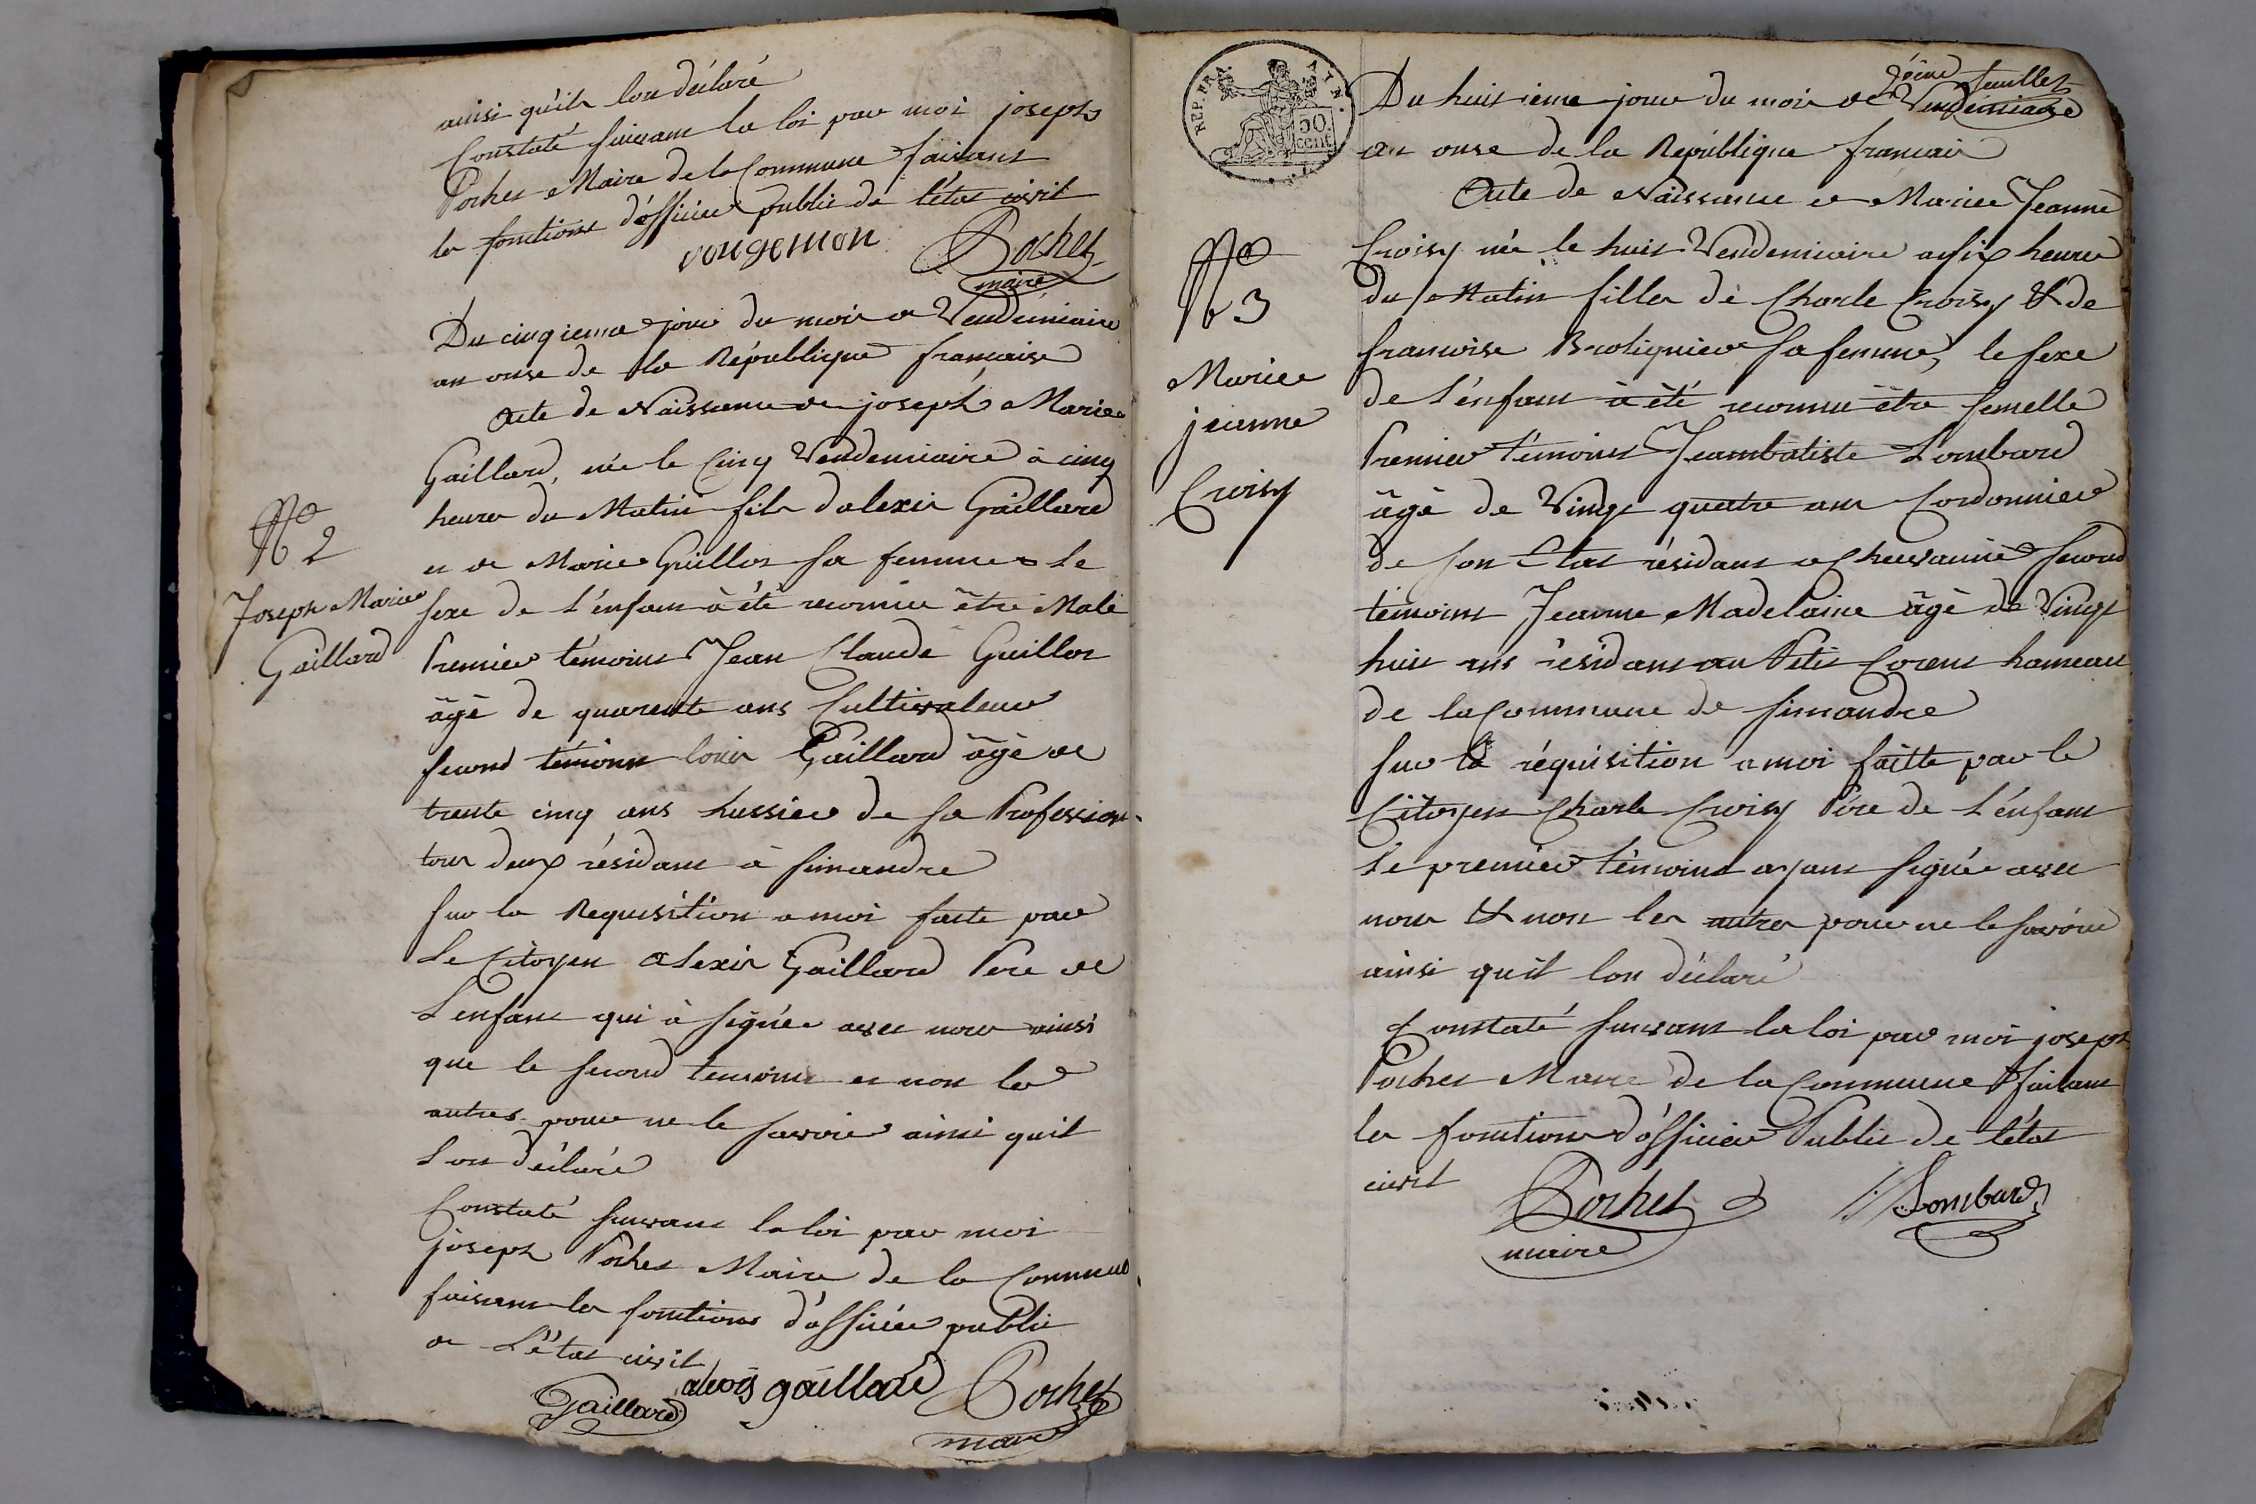 ainsi quils lon déclaré
Constaté suivant la loi par moi joseph
Pochet Maire de la Commune faisant
les fonctions d'officier public de l'état civil
rougemon Pochet
maire
Du cinquieme jour du mois de Vendémiaire
an onse de la République française
Acte de Naissance de joseph Marie
Gaillard, née le Cinq Vendemiaire à cinq
heures du Matin fils dalexis Gaillard
et de Marie Guillot sa femme Le
sexe de L'enfant à été reconnu être Male
Premier témoins Jean Claude Guillot
âgé de quarente ans Cultivateur
second témoins louis Gaillard âgé de
trente cinq ans hussier de sa Profession
tous deux résidant à simandre
sur la Requisition a moi faite par
Le Citoyen alexis Gaillard Pere de
L'enfant qui à signée avec nous ainsi
que le second temoins et non les
autres pour ne le savoir ainsi quil
Lon déclaré
Constaté suivant la loi par moi
joseph Pochet Maire de la Commune
faisant les fonctions d'officier public
de L'état civil
Gaillard alexis gaillard Pochet
maire
N° 2
Joseph Marie
Gaillard
REP. FRA.
50
cent.
2eme feuillet
Du huitieme jour du mois de Vendémiaire
an onse de la République francais
Acte de Naissance de Marie Jeanne
Croisy née le huit Vendemiaire a six heures
du Matin filles de Charle Croisy & de
francoise Brotignier sa femme, le sexe
de L'énfant à été reconnu être femelle
Premier témoins Jeambatiste Lombard
âgé de Vingt quattre ans Cordonnier
de son Etat résidant a Chevannie second
témoins Jeanne Madelaine âgé de Vingt
huit ans résidant au Petit Corent hameau
de la Commune de simandre
sur la réquisition a moi faitte par le
Citoyen Charle Croisy Pére de L'énfant
Le premier témoins ayant signée avec
nous & non les autres pour ne le savoir
ainsi quil lon déclaré
Constaté suivant la loi par moi joseph
Pochet Maire de la Commune & faisant
les fonctions d'officier Public de l'état
civil
Pochet Lombard
maire
N° 3
Marie
jeanne
Croisy